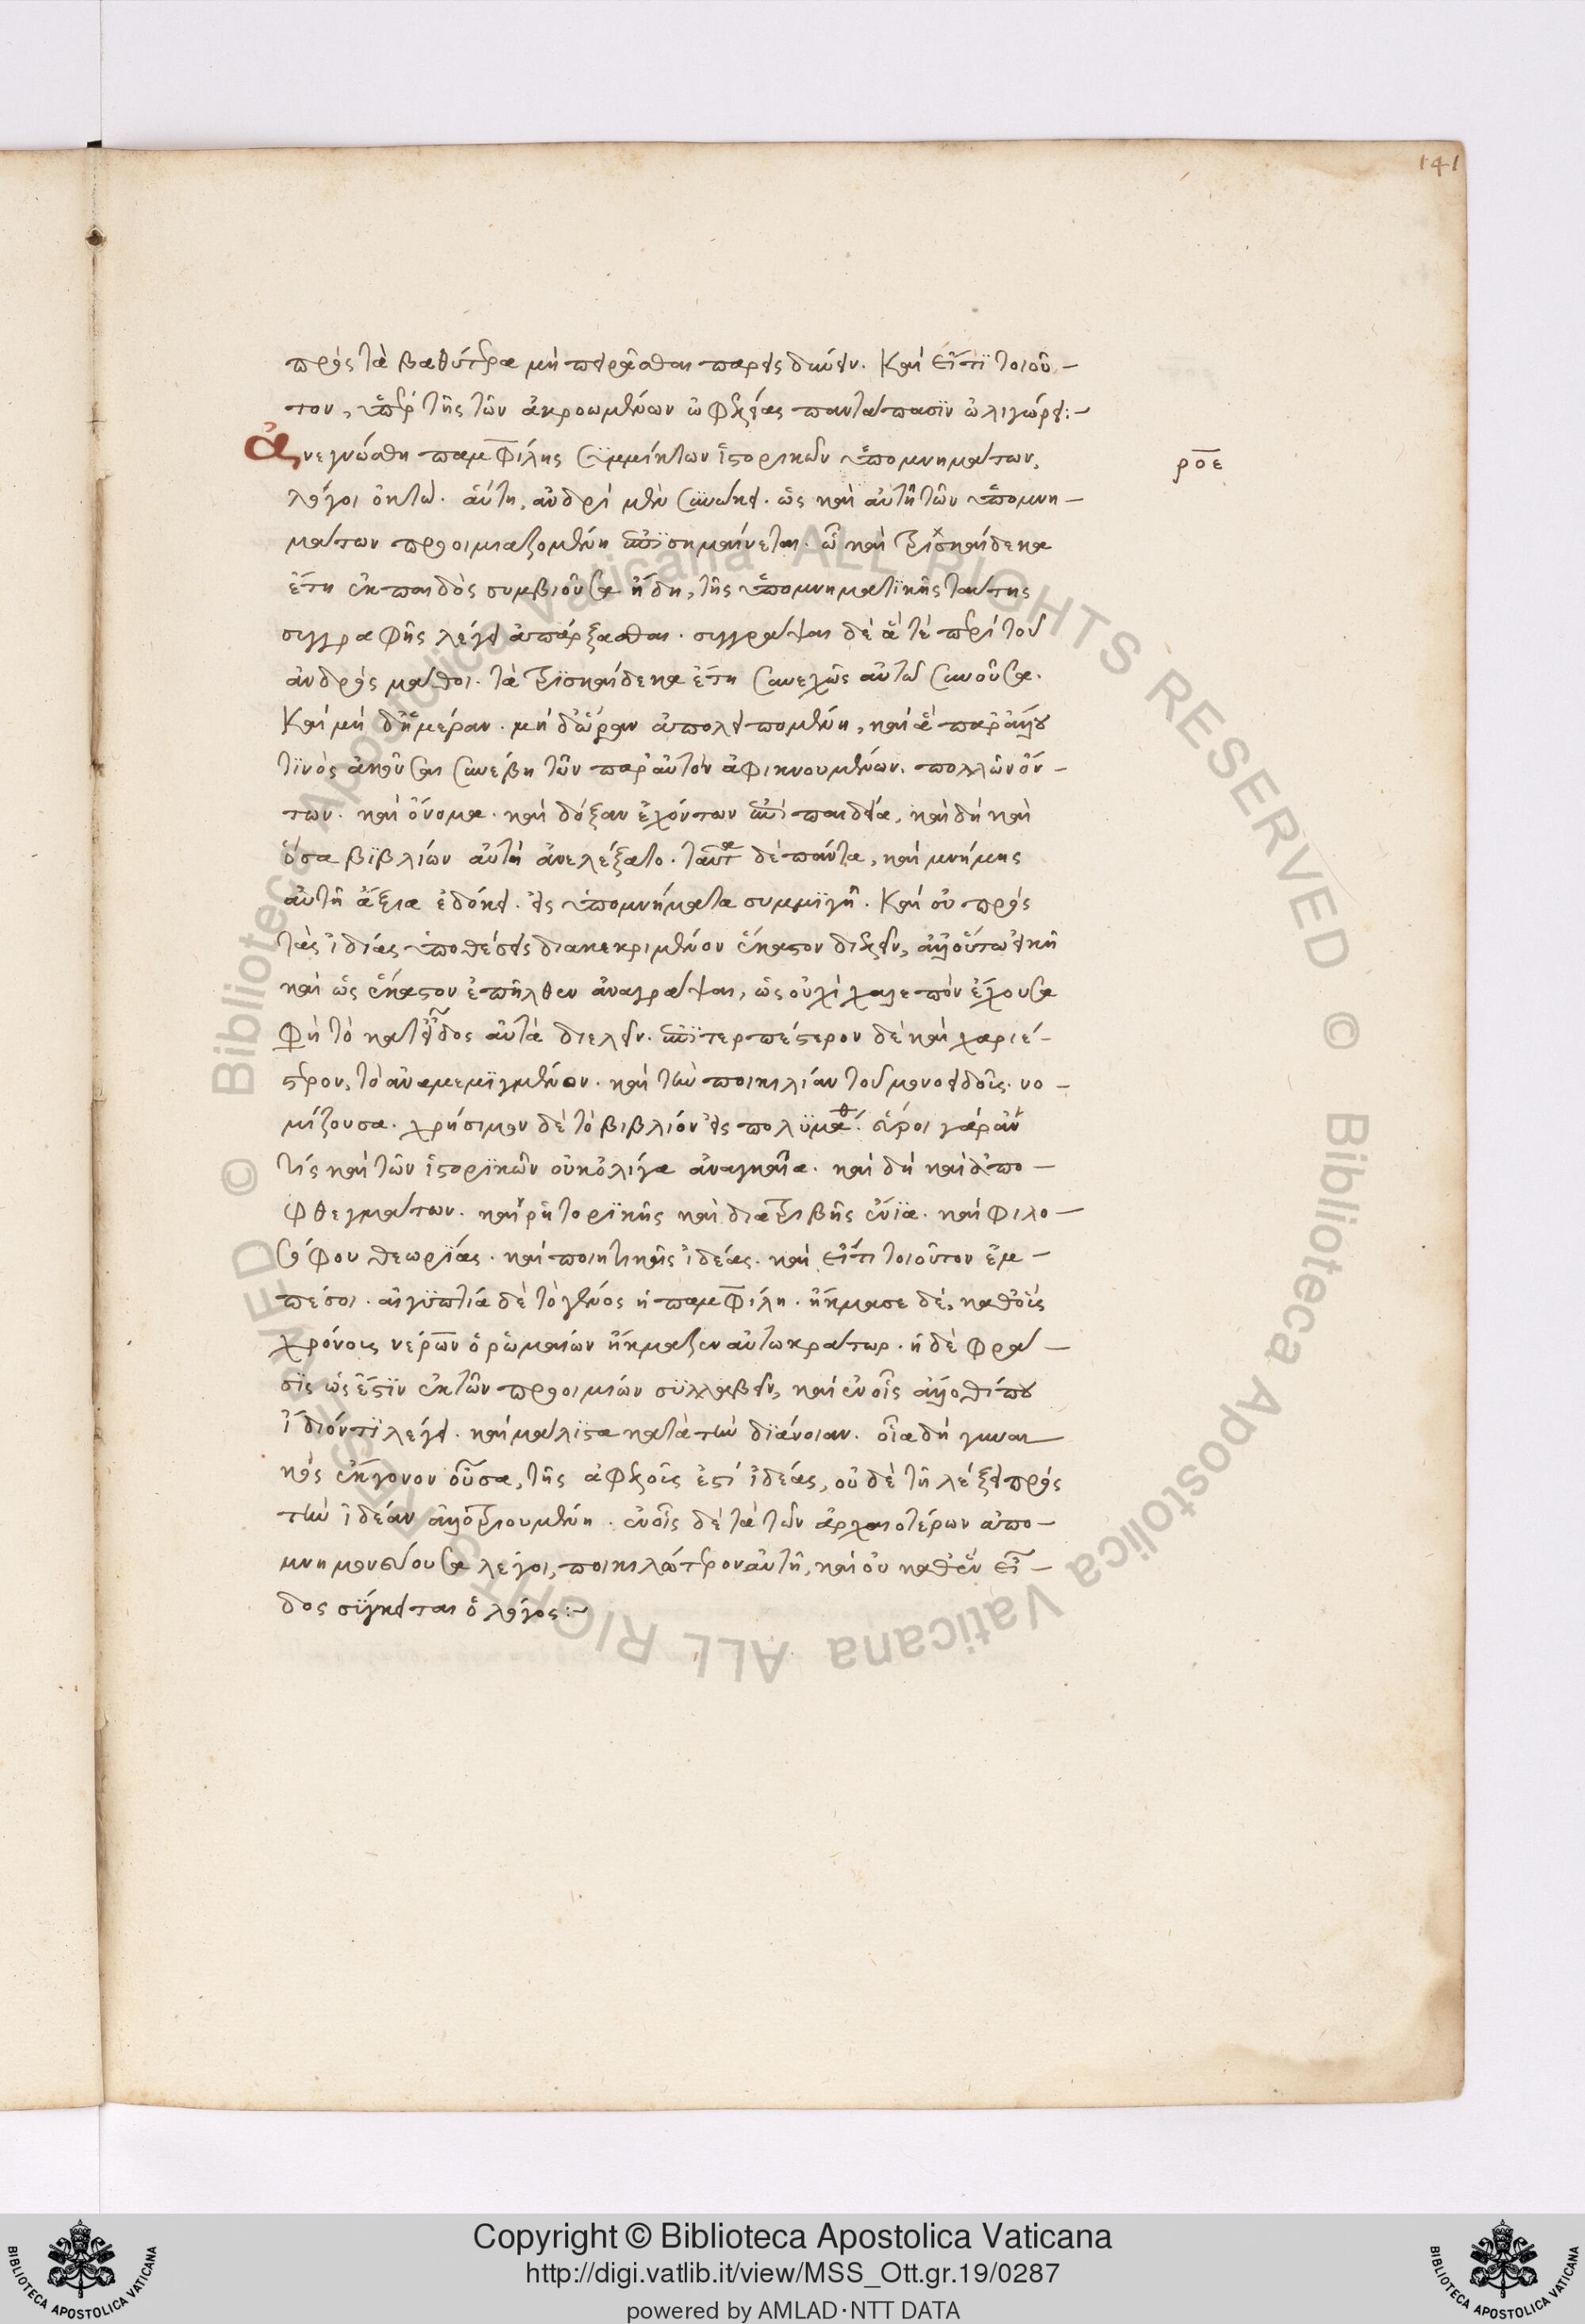 141
πρὸς τὰ βαθύτερα μὴ πειρᾶσθαι παρεισδύνειν. Καὶ εἴ τι τοιοῦ-
τον, ὑπὲρ τῆς τῶν ἀκροωμένων ὠφελείας παντάπασιν ὠλιγώρει:-
Ἀνεγνώσθη παμφίλης συμμίκτων ἱστορικῶν ὑπομνημάτων,
ροε
λόγοι ὀκτώ. αὕτη, ἀνδρὶ μὲν συνώκει. ὡς καὶ αὐτὴ τῶν ὑπομνη-
μάτων προοιμιαζομένη ἐπισημαίνεται. ᾧ καὶ τρισκαίδεκα
ἔτη ἐκ παιδὸς συμβιοῦσα ἤδη, τῆς ὑπομνηματικῆς ταύτης
συγγραφῆς λέγει ἀπάρξασθαι. συγγράψαι δὲ ἅ τε παρὰ τοῦ
ἀνδρὸς μάθοι. τὰ τρισκαίδεκα ἔτη συνεχῶς αὐτῶ συνοῦσα.
Καὶ μὴ δ' ἡμέραν. μὴ δ' ὥραν ἀπολειπομένη, καὶ ἃ παρ' ἄλλου
τινὸς ἀκοῦσαι συνέβη τῶν παρ' αὐτὸν ἀφικνουμένων. πολλῶν ὄν-
των. καὶ ὄνομα. καὶ δόξαν ἐχόντων ἐπὶ παιδεία, καὶ δὴ καὶ
ὅσα βιβλίων αὐτὴ ἀνελέξατο. ταῦτα δὲ πάντα, καὶ μνήμης
αὐτῆ ἄξια ἐδόκει. εἰς ὑπομνήματα συμμιγῆ. Καὶ οὐ πρὸς
τὰς ἰδίας ὑποθέσεις διακεκριμένον ἕκαστον διελεῖν, ἀλλ' οὕτως εἰκῆ
καὶ ὡς ἕκαστον ἐπῆλθεν ἀναγράψαι, ὡς οὐχὶ χαλεπὸν ἔχουσα
φη τὸ κατ' εἶδος αὐτὰ διελεῖν. ἐπιτερπέστερον δὲ καὶ χαριέ-
στερον, τὸ ἀναμεμιγμένον. καὶ τὴν ποικιλίαν τοῦ μονοειδοῦς. νο-
μίζουσα. χρήσιμον δὲ τὸ βιβλίον εἰς πολυμαθ. εὕροι γὰρ ἄν
τις καὶ τῶν ἱστορικῶν οὐκ ὀλίγα ἀναγκαῖα. καὶ δὴ καὶ ἀπο-
φθεγμάτων. καὶ ῥητορικῆς καὶ διατριβῆς ἔνια. καὶ φιλο-
σόφου θεωρίας. καὶ ποιητικῆς ἰδέας. καὶ εἴ τι τοιοῦτον ἐμ-
πέσοι. αἰγυπτία δὲ τὸ γένος ἡ παμφίλη. ἤκμασε δὲ, καθ' οὓς
χρόνους νέρων ὁ ῥωμαίων ἤκμαζεν αὐτωκράτωρ. ἡ δὲ φρά-
σις ὡς ἔστιν ἐκ τῶν προοιμίων συλλαβεῖν, καὶ ἐν οἷς ἄλλοθί που
ἴδιόν τι λέγει. καὶ μάλιστα κατὰ τὴν διάνοιαν. οἷα δὴ γυναι
κὸς ἔκγονον οὖσα, τῆς ἀφελοῦς ἐστὶ ἰδέας, οὐδὲ τῆ λέξει πρὸς
τὴν ἰδέαν ἀλλοτριουμένη. ἐν οἷς δὲ τὰ τῶν ἀρχαιοτέρων ἀπο-
μνημονεύουσα λέγοι, ποικιλώτερον αὐτῆ, καὶ οὐ καθ' ἓν εἶ-
δος σύγκειται ὁ λόγος:-
Copyright © Biblioteca Apostolica Vaticana
http://digi.vatlib.it/view/MSS_Ott.gr.19/0287
powered by AMLAD·NTT DATA